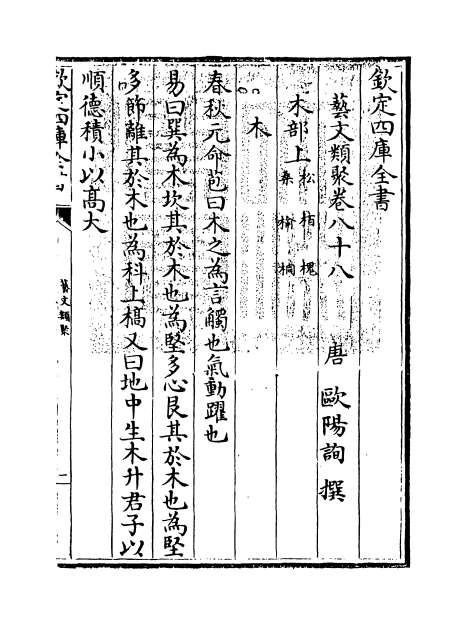 欽定四庫全書
藝文類聚卷八十八
唐 歐陽詢 撰
木部上 松 柏 槐
桑 榆 桐
木
春秋元命苞曰木之為言觸也氣動躍也
易曰巽為木坎其於木也為堅多心艮其於木也為堅
多節離其於木也為科上槁又曰地中生木升君子以
順德積小以髙大
欽定四庫全書
藝文類聚